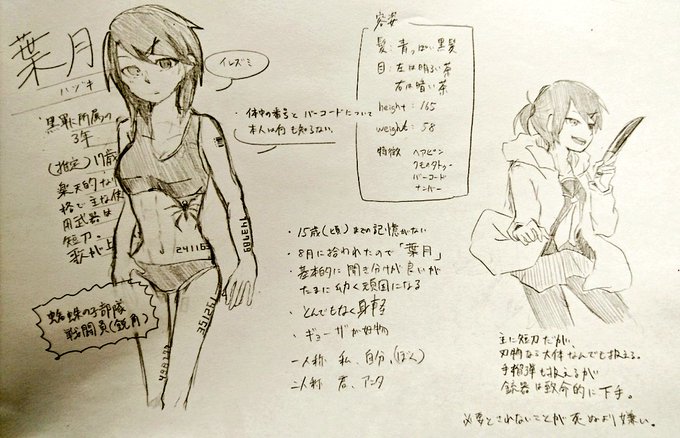 葉月
ハヅキ
黒軍所属の
3年
(推定)17歳
楽天的な
格で主な使
用武器は
短刀。
蜘蛛の子部隊
戦闘員(鋭角)
イレズミ
・体中の番号とバーコードについて
本人は何も知らない。
241163
743989
352151
容姿
髪:青っぽい黒髪
目:左は明るい茶
右は暗い茶
height:165
weight:58
特徴 ヘアピン
クモのタトゥー
バーコード
ナンバー
・15歳(頃)までの記憶がない
・8月に拾われたので「葉月」
・基本的に聞き分けが良いが
たまに幼く頑固になる
・とんでもなく身軽
・ギョーザが好物
一人称 私、自分(ぼく)
二人称 君、アンタ
主に短刀だが、
刃物なら大体なんでも扱える。
手榴弾も扱えるが
銃器は致命的に下手。
必要とされないことが死ぬより嫌い。